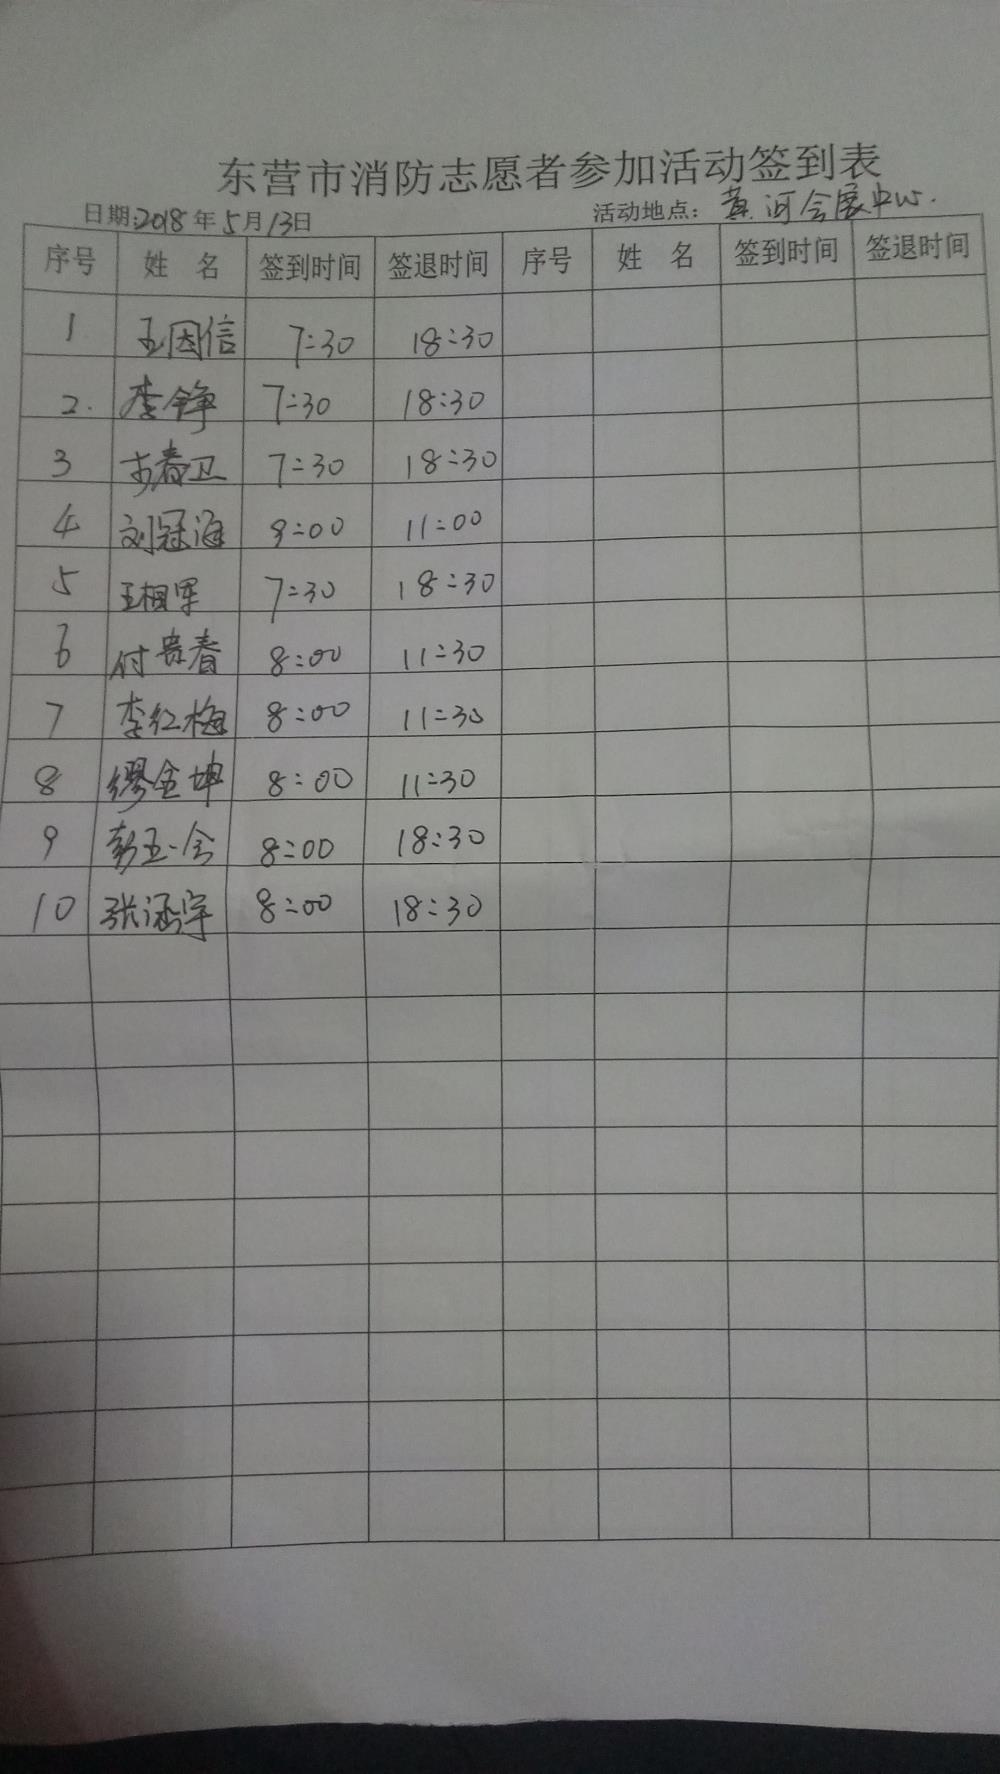 东营市消防志愿者参加活动签到表
日期:2018年5月13日 活动地点：黄河会展中心.
序号 姓 名 签到时间 签退时间 序号 姓 名 签到时间 签退时间
1 王因信 7:30 18:30
2. 李铮 7:30 18:30
3 春卫 7:30 18:30
4 刘冠海 9:00 11:00
5 王相军 7:30 18:30
6 付贵春 8:00 11:30
7 李红梅 8:00 11:30
8 缪金坤 8:00 11:30
9 彭玉会 8:00 18:30
10 张涵宇 8:00 18:30